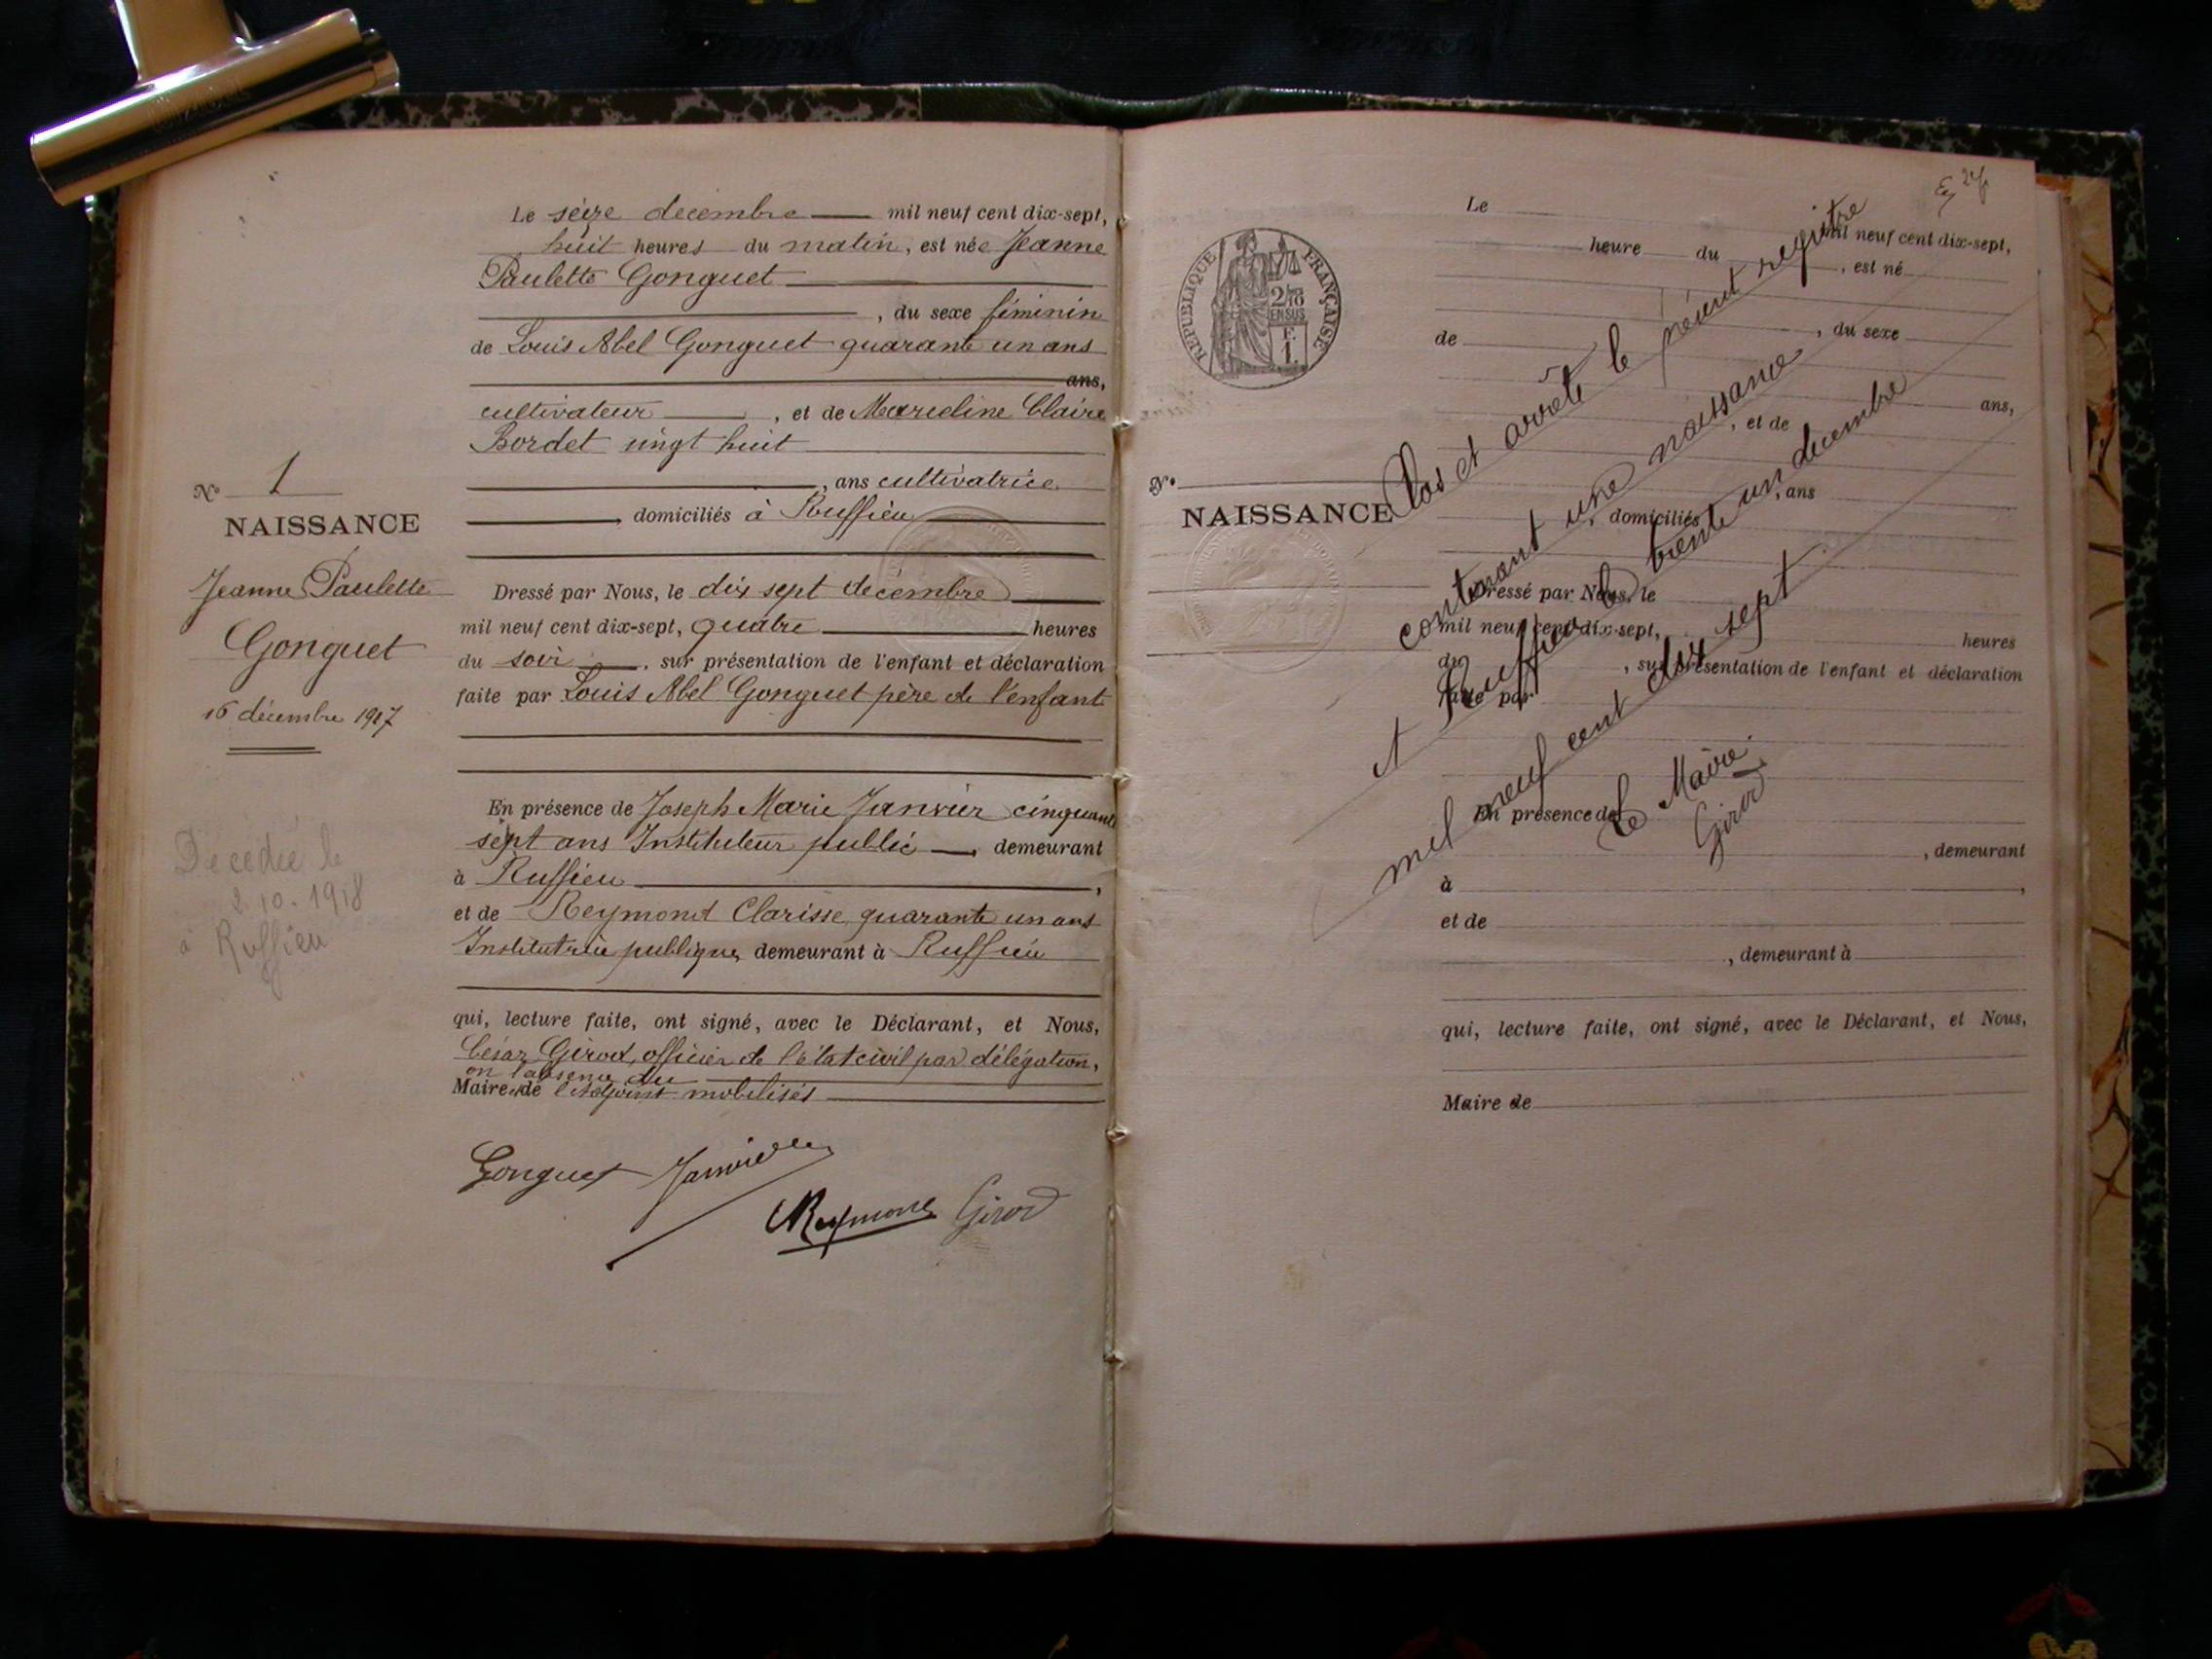 Le seize décembre mil neuf cent dix-sept,
huit heures du matin, est née Jeanne
Paulette Gonguet
, du sexe féminin
de Louis Abel Gonguet quarante un ans
ans,
cultivateur , et de Claire
Bordet vingt huit
, ans cultivatrice
, domiciliés à Ruffieu
Nº 1
NAISSANCE
Jeanne Paulette
Gonguet
16 décembre 1917
Décédée le
2.10.1918
à Ruffieu
Dressé par Nous, le dix sept décembre
mil neuf cent dix-sept, quatre heures
du soir , sur présentation de l'enfant et déclaration
faite par Louis Abel Gonguet père de l'enfant
En présence de Joseph Marie Janvier cinquante
sept ans Instituteur public , demeurant
à Ruffieu ,
et de Reymond Clarisse, quarante un ans
Institutrice publique, demeurant à Ruffieu
qui, lecture faite, ont signé, avec le Déclarant, et Nous,
César Girod, officier de l'état civil par délégation,
en l'absence du
Maire et de l'Adjoint mobilisés
Gonguet Janvier
CReymond Girod
27
RÉPUBLIQUE FRANÇAISE
2/10
EN SUS
F.
1.
Le
mil neuf cent dix-sept,
heure du , est né
, du sexe
de
ans,
, et de
, ans
, domiciliés
Nº
NAISSANCE
Dressé par Nous, le
mil neuf cent dix-sept, heures
du , sur présentation de l'enfant et déclaration
faite par
En présence de
, demeurant
à ,
et de
, demeurant à
qui, lecture faite, ont signé, avec le Déclarant, et Nous,
Maire de
Clos et arrêté le présent registre
contenant une naissance
A Ruffieu le trente un décembre
mil neuf cent dix sept
Le Maire
Girod